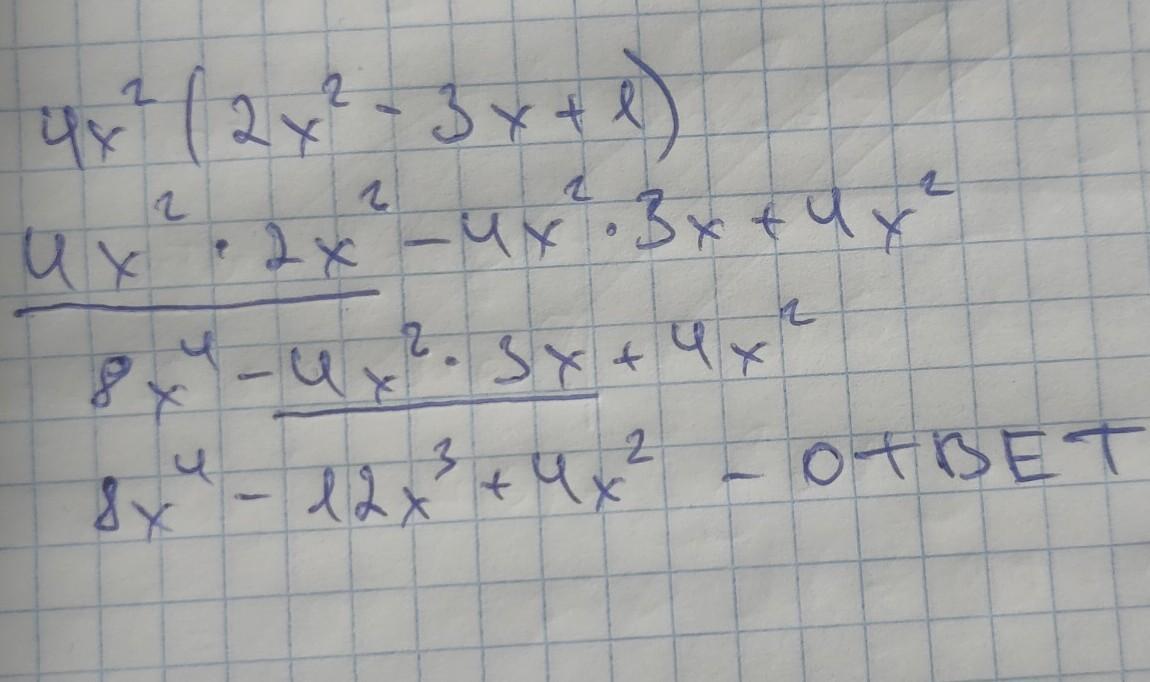 4x² (2x² - 3x + 1)
4x² · 2x² - 4x² · 3x + 4x²
8x⁴ - 4x² · 3x + 4x²
8x⁴ - 12x³ + 4x² - ОТВЕТ